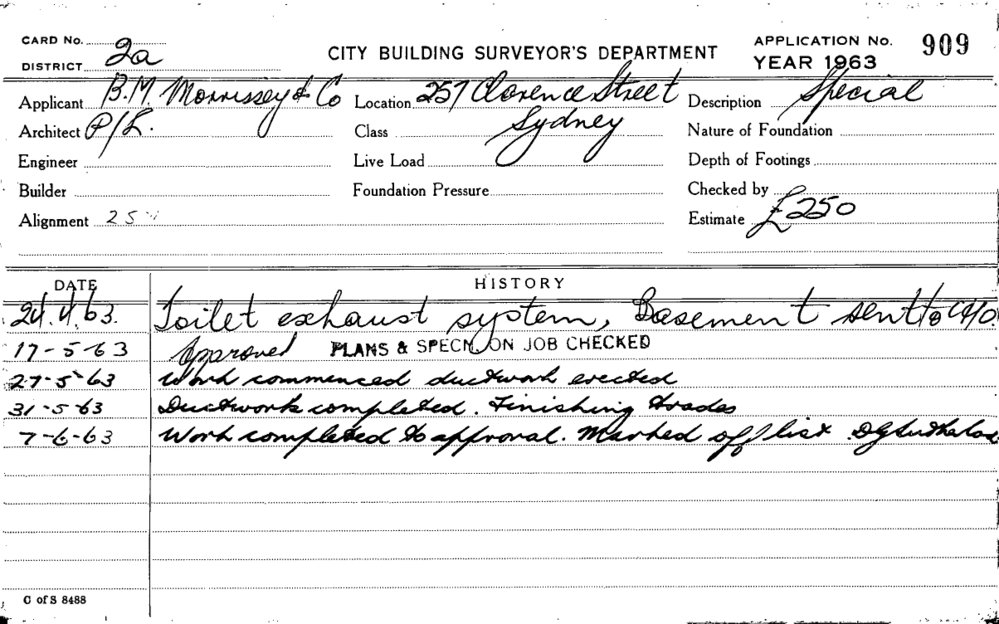 CARD No. 2a
DISTRICT
CITY BUILDING SURVEYOR'S DEPARTMENT
APPLICATION No. 909
YEAR 1963
Applicant B.M. Morrissey & Co
Location 257 Clarence Street
Description Special
Architect P/L.
Class Sydney
Nature of Foundation
Engineer
Live Load
Depth of Footings
Builder
Foundation Pressure
Checked by
Alignment 25
Estimate £250
DATE HISTORY
24.4.63. Toilet exhaust system, Basement sent to
17-5-63 Approved PLANS & SPECN. ON JOB CHECKED
27-5-63 Work commenced ductwork erected
31-5-63 Ductwork completed. Finishing trades
7-6-63 Work completed to approval. Marked off list.
C of S 8488